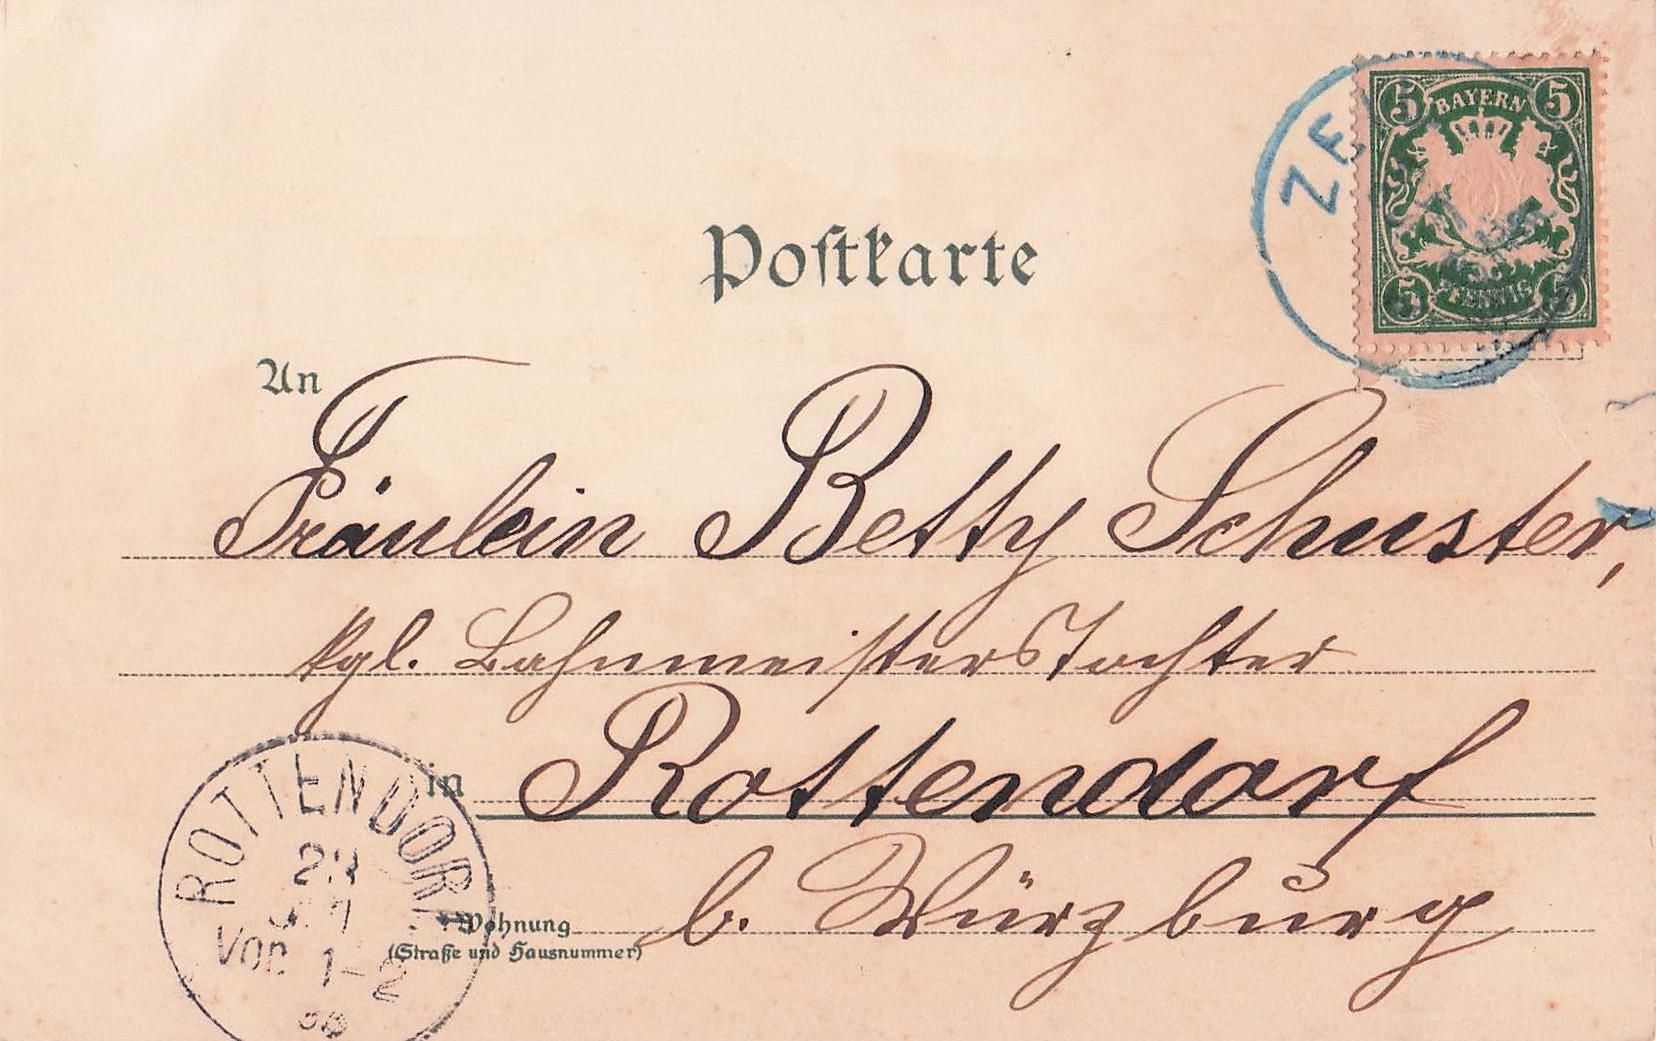 Postkarte
5 BAYERN 5
5 PFENNIG 5
ZE
An
Fräulein Betty Schuster,
kgl. Bahnmeisterstochter
in Rottendorf
Wohnung
(Straße und Hausnummer)
b. Würzburg
ROTTENDORF
VOR 1-2